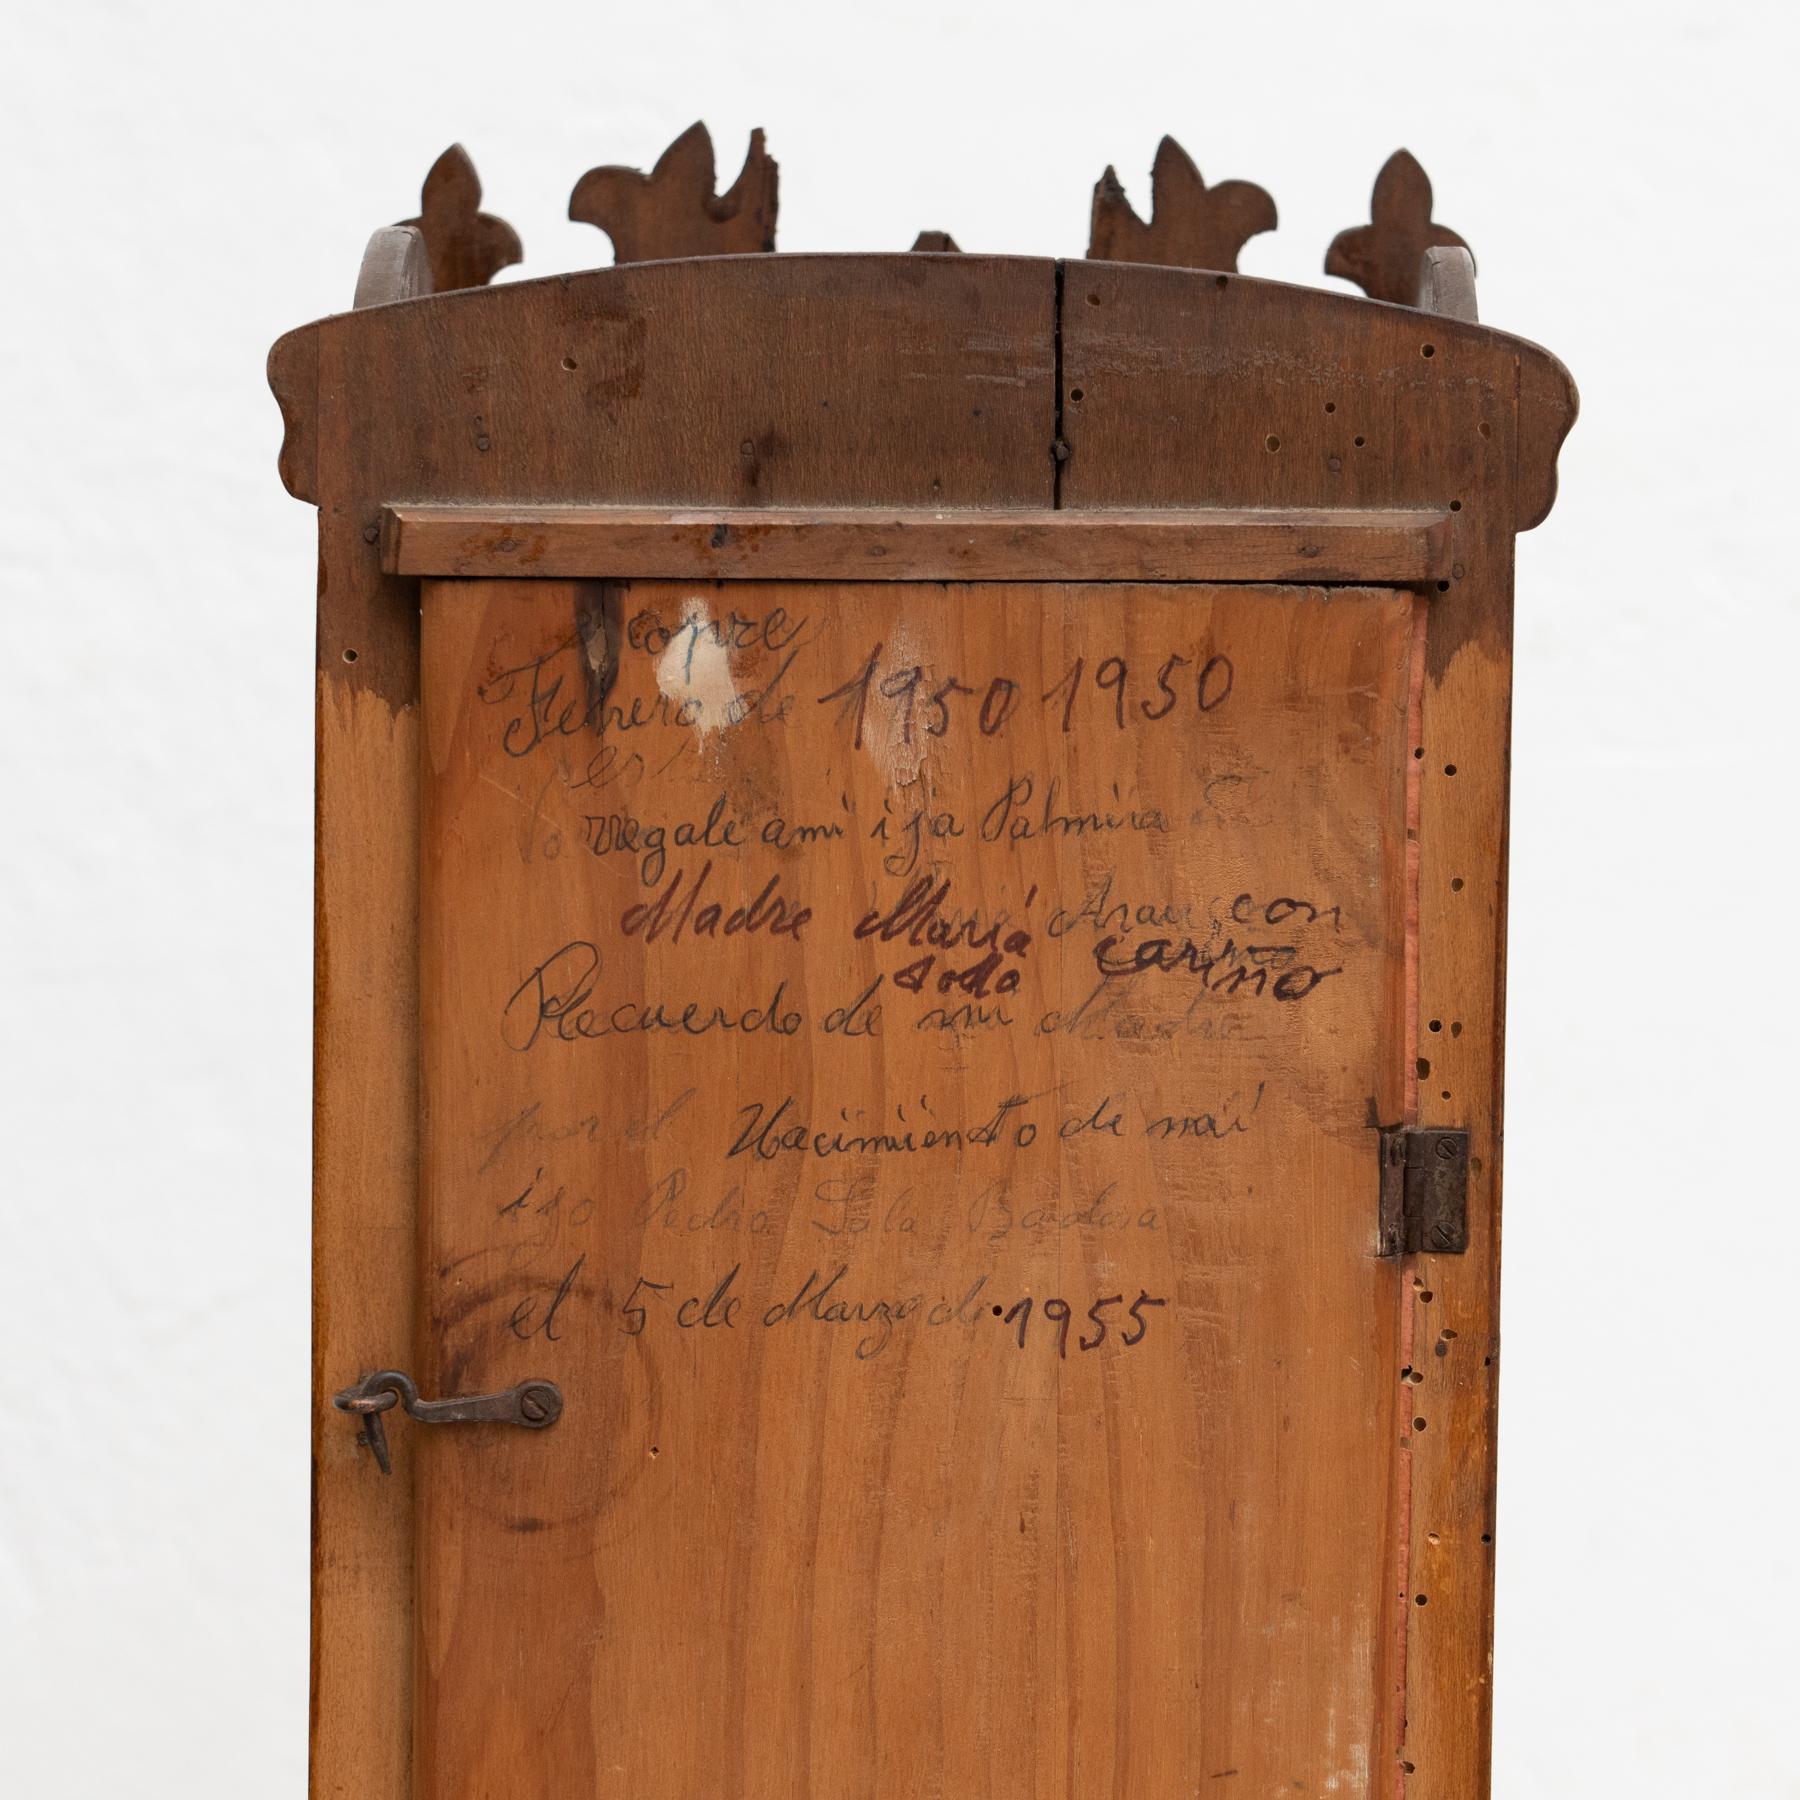 compre
Febrero de 1950 1950
es
lo rregale ami ija Palmira
Madre María con
todo cariño
Recuerdo de mi Madre
por el Nacimiiento de mi
ijo Pedro Sola Badosa
el 5 de Marzo de 1955